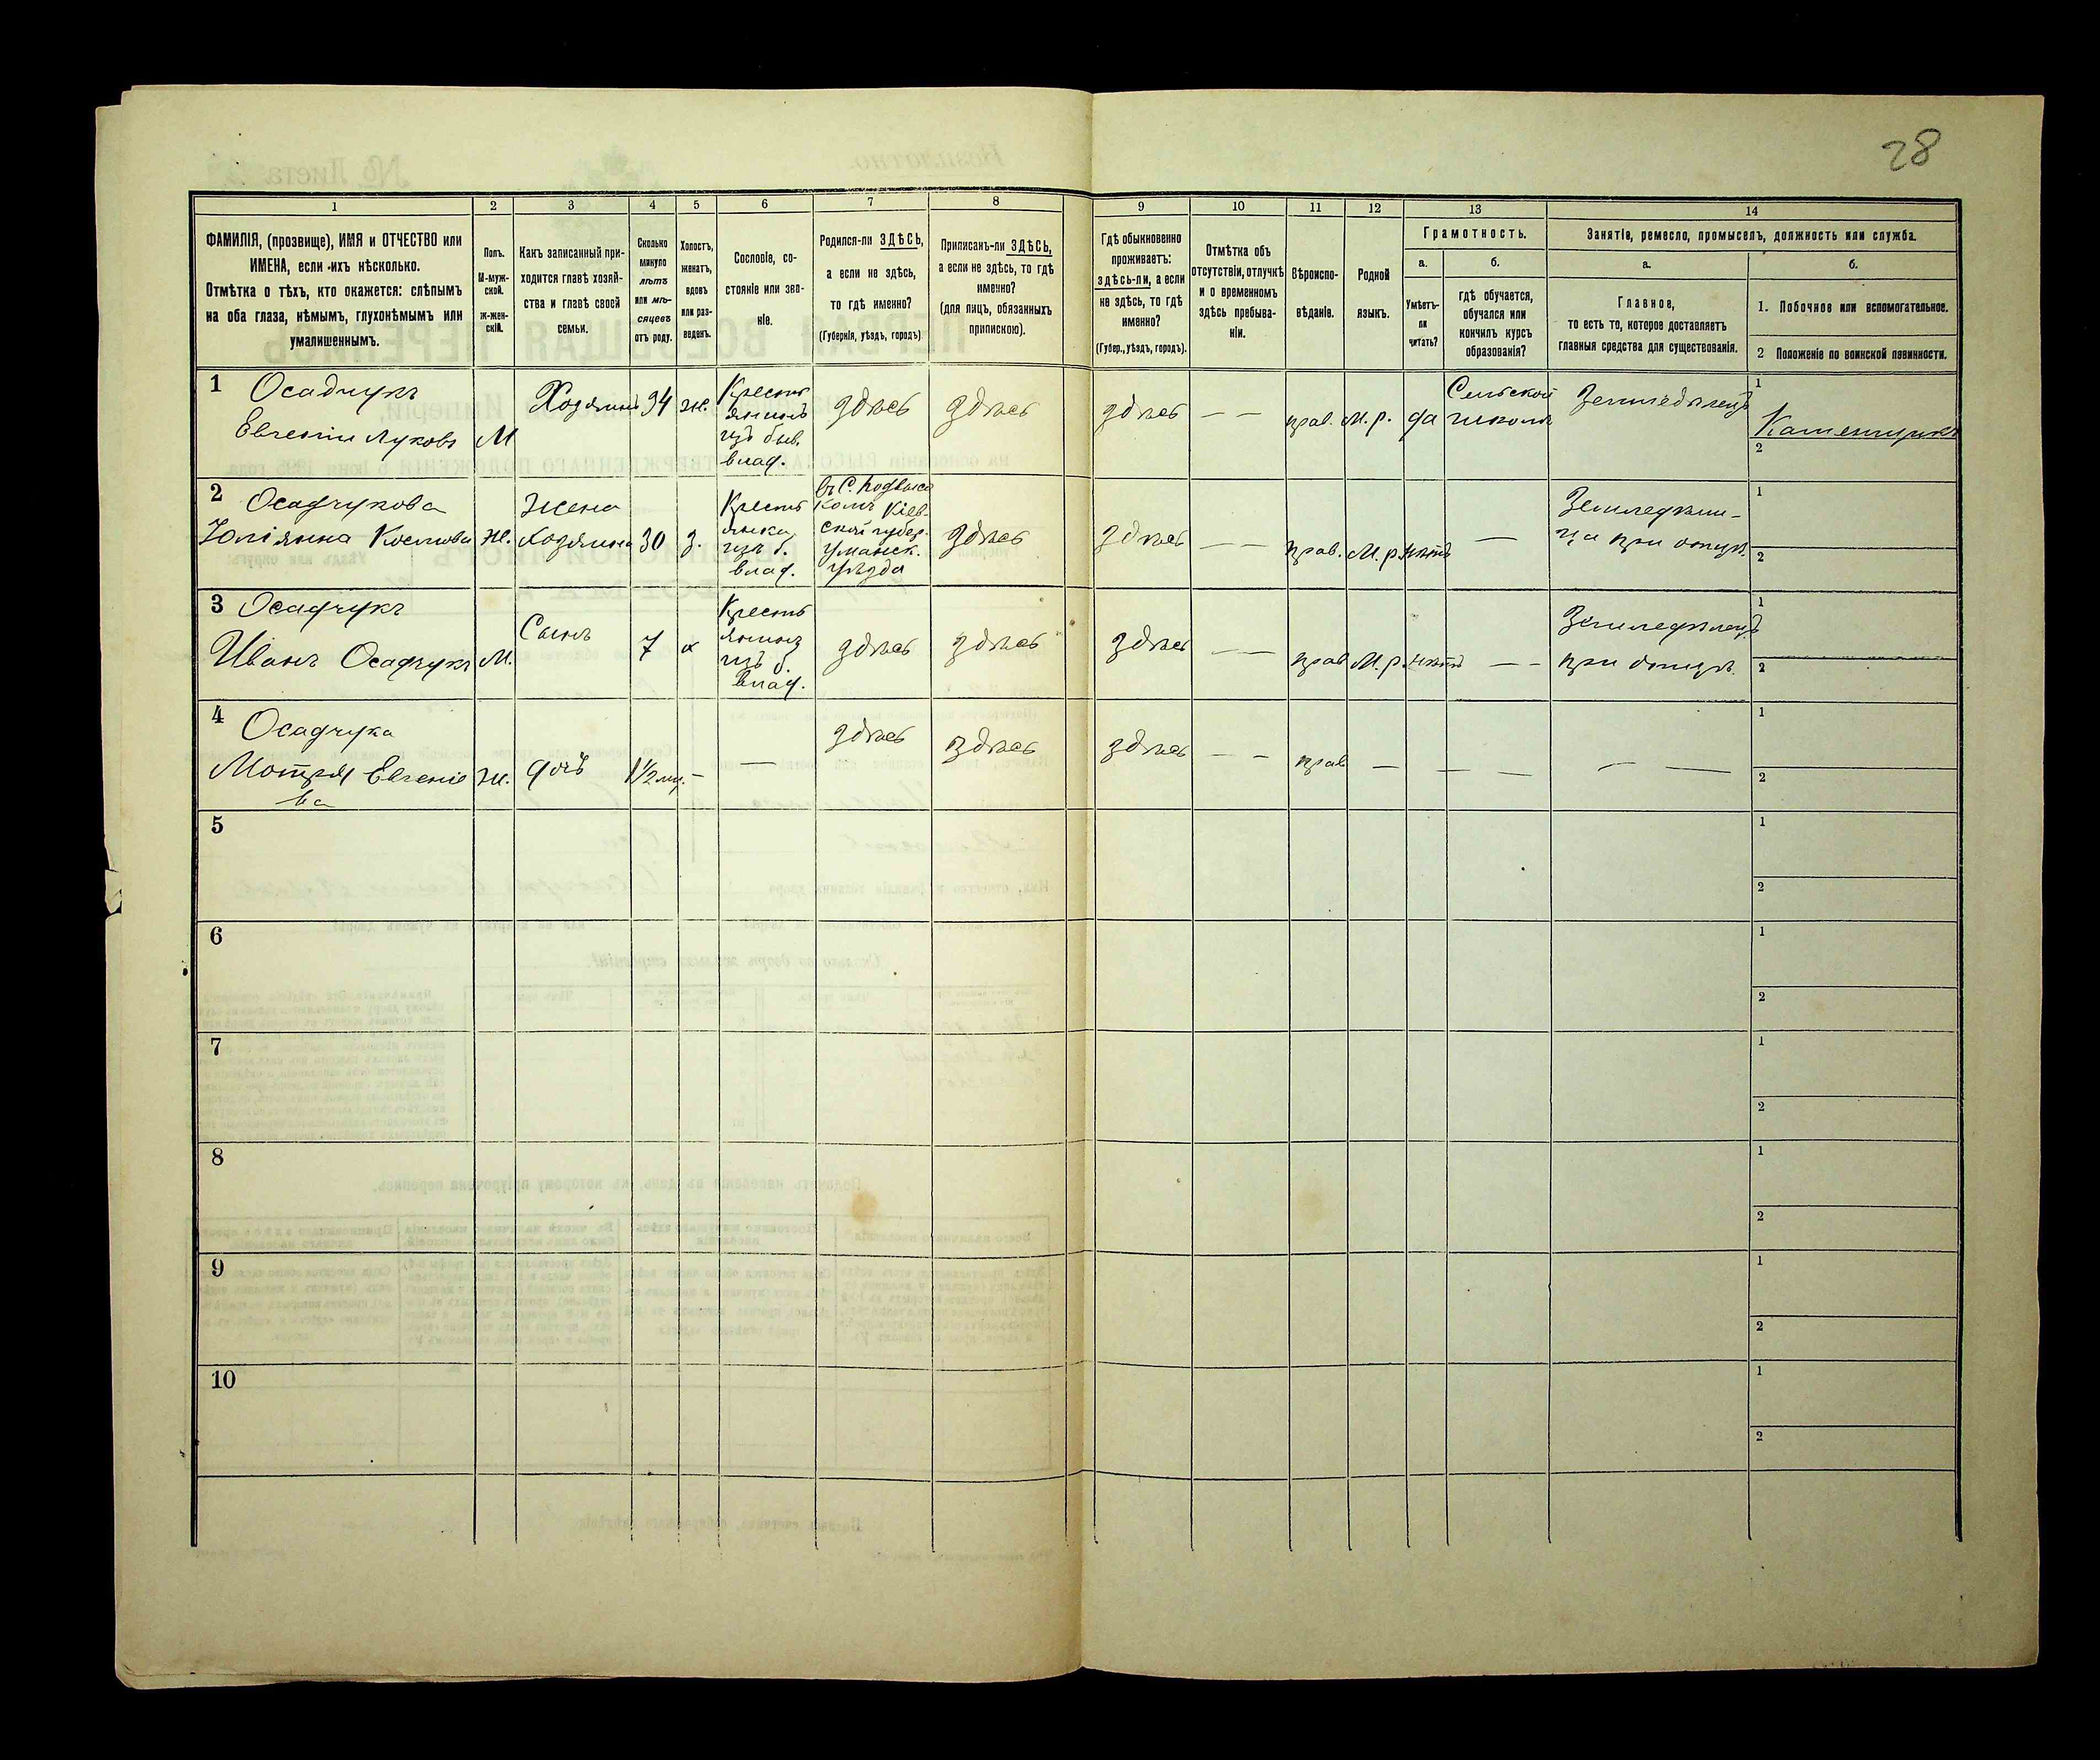 28
1
2
3
4
5
6
7
8
9
10
11
12
13
14
ФАМИЛІЯ, (прозвище), ИМЯ и ОТЧЕСТВО или
ИМЕНА, если ихъ нѣсколько.
Отмѣтка о тѣхъ, кто окажется: слѣпымъ
на оба глаза, нѣмымъ, глухонѣмымъ или
умалишеннымъ.
Полъ.
М-муж-
ской.
Ж-жен-
скій.
Какъ записанный при-
ходится главѣ хозяй-
ства и главѣ своей
семьи.
Сколько
минуло
лѣтъ
или мѣ-
сяцевъ
отъ роду.
Холостъ,
женатъ,
вдовъ
или раз-
веденъ.
Сословіе, со-
стояніе или зва-
ніе.
Родился-ли ЗДѢСЬ,
а если не здѣсь,
то гдѣ именно?
(Губернія, уѣздъ, городъ)
Приписанъ-ли ЗДѢСЬ,
а если не здѣсь, то гдѣ
именно?
(для лицъ, обязанныхъ
припискою).
Гдѣ обыкновенно
проживаетъ:
здѣсь-ли, а если
не здѣсь, то гдѣ
именно?
(Губер., уѣздъ, городъ).
Отмѣтка объ
отсутствіи, отлучкѣ
и о временномъ
здѣсь пребыва-
ніи.
Вѣроиспо-
вѣданіе.
Родной
языкъ.
Грамотность.
а.
Умѣетъ-
ли
читать?
б.
гдѣ обучается,
обучался или
кончилъ курсъ
образованія?
Занятіе, ремесло, промыселъ, должность или служба.
а.
Главное,
то есть то, которое доставляетъ
главныя средства для существованія.
б.
1. Побочное или вспомогательное.
2 Положеніе по воинской повинности.
1 Осадчукъ
Евгеній Луковъ
М
Хозяинъ
34
ж.
Кресть
янинъ
изъ быв.
влад.
здѣсь
здѣсь
здѣсь
— —
прав.
М. р.
да
Сельской
школѣ
Земледѣлецъ
1
2
2 Осадчукова
Юліянна
ж.
Жена
хозяина
30
з.
Кресть
янка
изъ б.
влад.
въ С. Подвысо
комъ Кіев-
ской губер.
Уманск.
уѣзда
здѣсь
здѣсь
— —
прав.
М. р.
нѣтъ
—
Земледѣли-
ца при
1
2
3 Осадчукъ
Иванъ Осадчукъ
М.
Сынъ
7
х
Кресть
янинъ
изъ б.
влад.
здѣсь
здѣсь
здѣсь
— —
прав
М. р.
нѣтъ
— —
Земледѣлецъ
при отцѣ.
1
2
4 Осадчука
Мотря Евгеніе
ва
ж.
дочь
1 1/2 мц.
—
—
здѣсь
здѣсь
здѣсь
— —
прав
—
—
—
— —
1
2
5
1
2
6
1
2
7
1
2
8
1
2
9
1
2
10
1
2